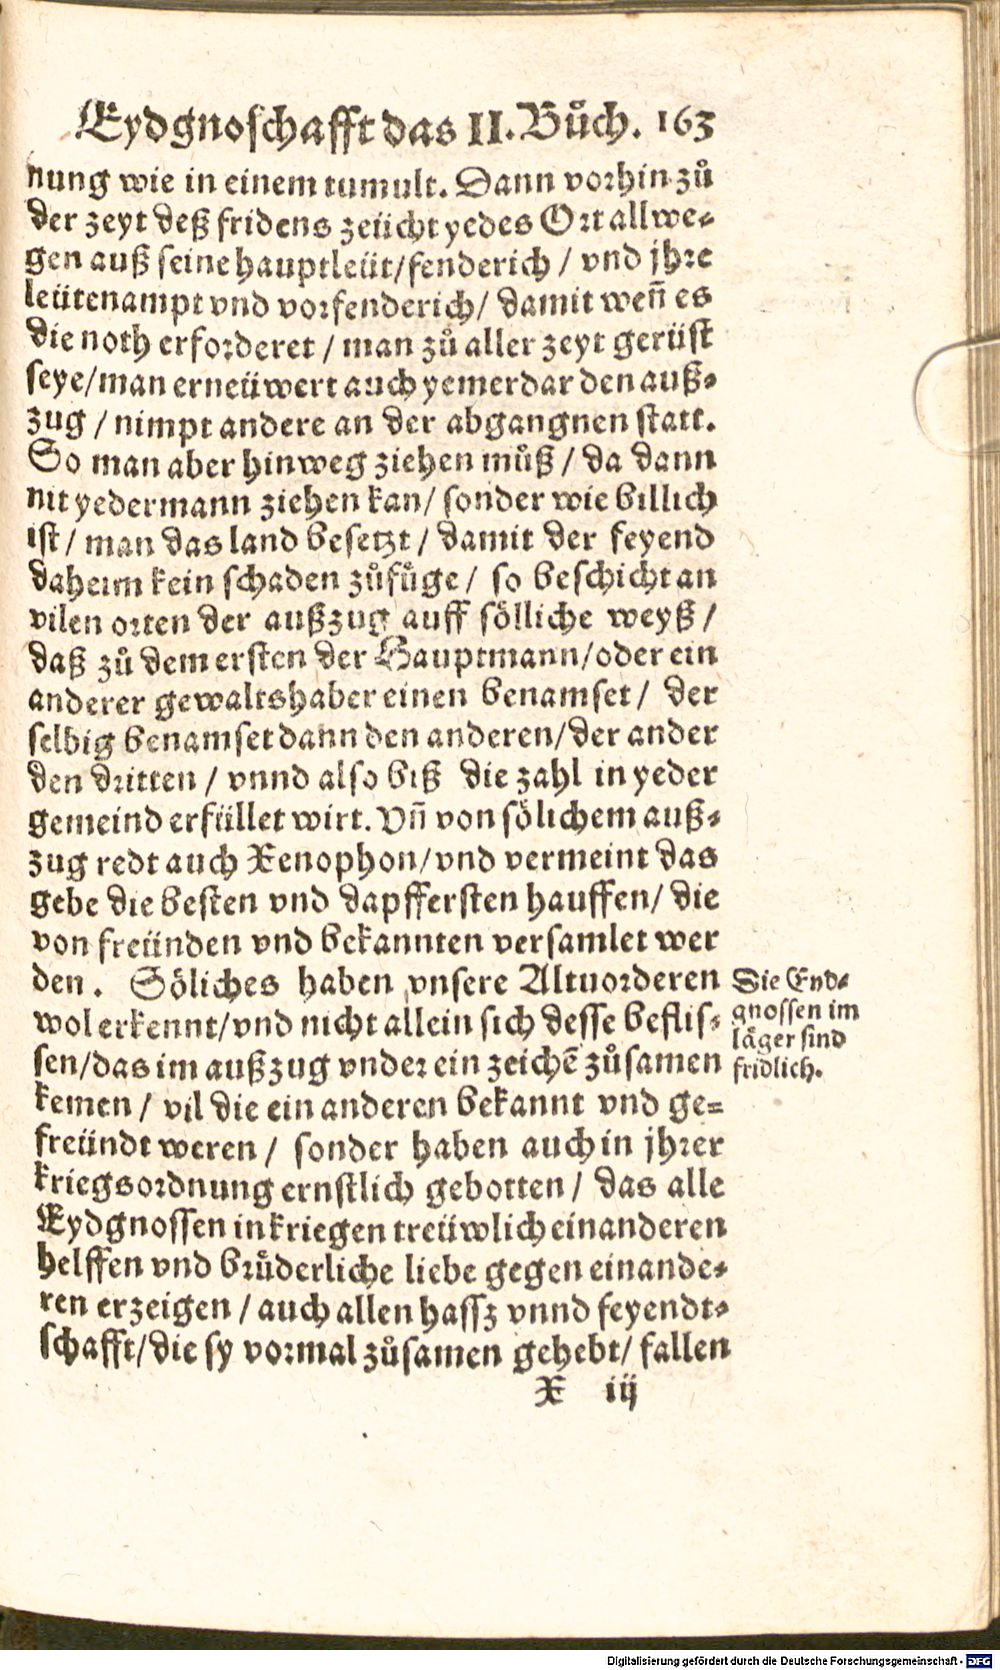 Eydgnoschafft das II. Bůch. 163
nung wie in einem tumult. Dann vorhin zů
der zeyt deß fridens zeücht yedes Ort allwe-
gen auß seine hauptleüt/fenderich / vnd jhre
leütenampt vnd vorfenderich/ damit weñ es
die noth erforderet / man zů aller zeyt gerüst
seye/man erneüwert auch yemerdar den auß-
zug / nimpt andere an der abgangnen statt.
So man aber hinweg ziehen můß / da dann
nit yedermann ziehen kan/ sonder wie billich
ist / man das land besetzt / damit der feyend
daheim kein schaden zůfüge / so beschicht an
vilen orten der außzug auff sölliche weyß /
daß zů dem ersten der Hauptmann/oder ein
anderer gewaltshaber einen benamset / der
selbig benamset dann den anderen/der ander
den dritten / vnnd also biß die zahl in yeder
gemeind erfüllet wirt. Vñ von sölichem auß-
zug redt auch Xenophon/vnd vermeint das
gebe die besten vnd dapffersten hauffen/ die
von freünden vnd bekannten versamlet wer
den. Söliches haben vnsere Altuorderen
wol erkennt/vnd nicht allein sich desse beflis-
sen/das im außzug vnder ein zeichē zůsamen
kemen / vil die ein anderen bekannt vnd ge-
freündt weren / sonder haben auch in jhrer
kriegsordnung ernstlich gebotten / das alle
Eydgnossen in kriegen treüwlich einanderen
helffen vnd brůderliche liebe gegen einande-
ren erzeigen / auch allen hassz vnnd feyendt-
schafft/die sy vormal zůsamen gehebt/ fallen
X iij
Die Eyd-
gnossen im
läger sind
fridlich.
Digitalisierung gefördert durch die Deutsche Forschungsgemeinschaft - DFG